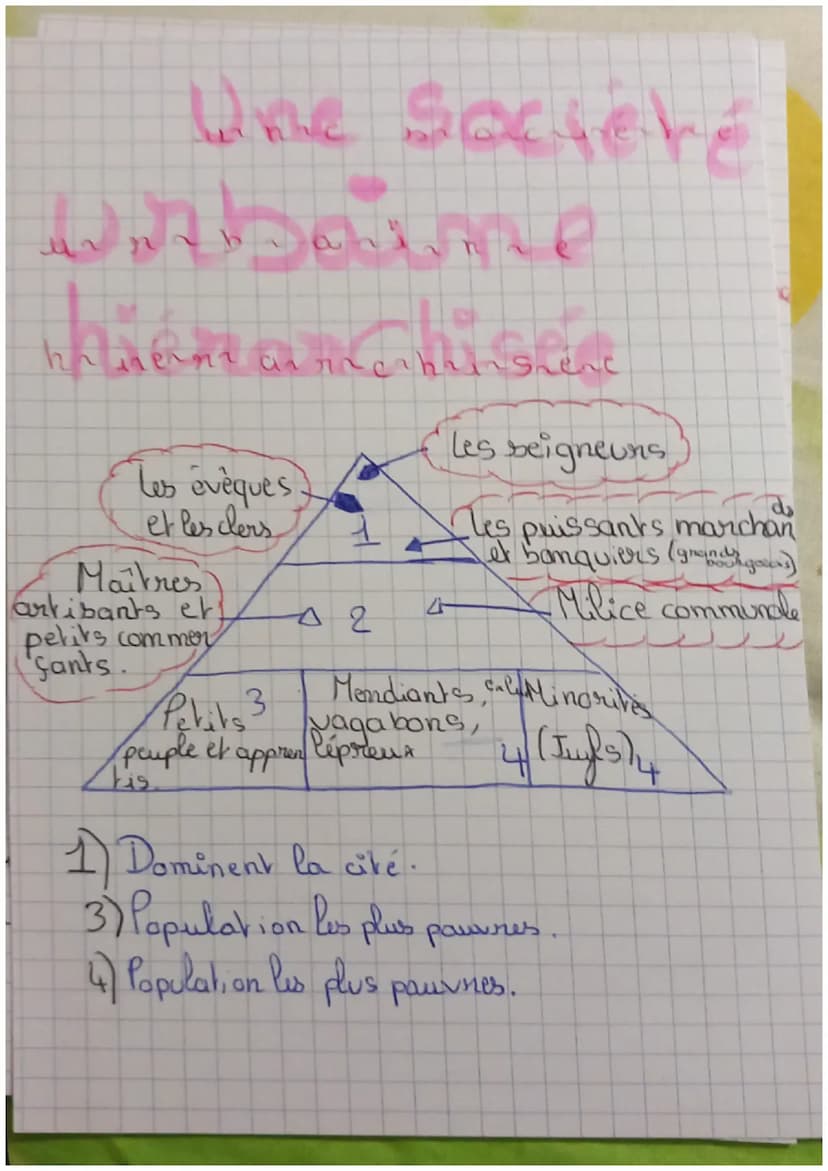 Une société
urbaine
hiérarchisée
Les seigneurs
Les évèques
et les clers
1
Les puissants marchands
et banquiers (grands bourgeois)
Maîtres
artisants et
petits commer
çants.
2
Milice communale
Petits 3
peuple et appren
tis
Mendiants,
vagabons,
lépreux
4
Minorités
(Juifs) 4
1) Dominent la cité.
3) Population les plus pauvres.
4) Population les plus pauvres.